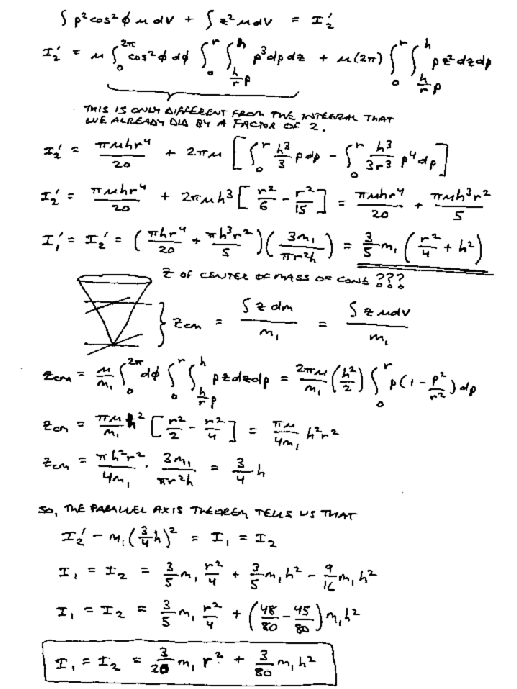 ∫ρ²cos²φ μ dV + ∫z² μ dV = I₂'
I₂' = μ ∫₀^{2π} cos²φ dφ ∫₀^r ∫_{(h/r)ρ}^h ρ³ dρ dz + μ(2π) ∫₀^r ∫_{(h/r)ρ}^h ρz² dz dρ
THIS IS ONLY DIFFERENT FROM THE INTEGRAL THAT
WE ALREADY DID BY A FACTOR OF 2.
I₂' = πμhr⁴/20 + 2πμ [∫₀^r h³/3 ρ dρ − ∫₀^r h³/3r³ ρ⁴ dρ]
I₂' = πμhr⁴/20 + 2πμh³ [r²/6 − r²/15] = πμhr⁴/20 + πμh³r²/5
I₁' = I₂' = (πhr⁴/20 + πh³r²/5)(3m₁/πr²h) = 3/5 m₁ (r²/4 + h²)
Z OF CENTER OF MASS OF CONE ???
} z_cm = ∫z dm / m₁ = ∫z μ dV / m₁
z_cm = μ/m₁ ∫₀^{2π} dφ ∫₀^r ∫_{(h/r)ρ}^h ρz dz dρ = 2πμ/m₁ (h²/2) ∫₀^r ρ(1 − ρ²/r²) dρ
z_cm = πμ/m₁ h² [r²/2 − r²/4] = πμ/4m₁ h²r²
z_cm = πh²r²/4m₁ · 3m₁/πr²h = 3/4 h
SO, THE PARALLEL AXIS THEOREM TELLS US THAT
I₂' − m₁(3/4 h)² = I₁ = I₂
I₁ = I₂ = 3/5 m₁ r²/4 + 3/5 m₁h² − 9/16 m₁h²
I₁ = I₂ = 3/5 m₁ r²/4 + (48/80 − 45/80) m₁h²
I₁ = I₂ = 3/20 m₁ r² + 3/80 m₁h²